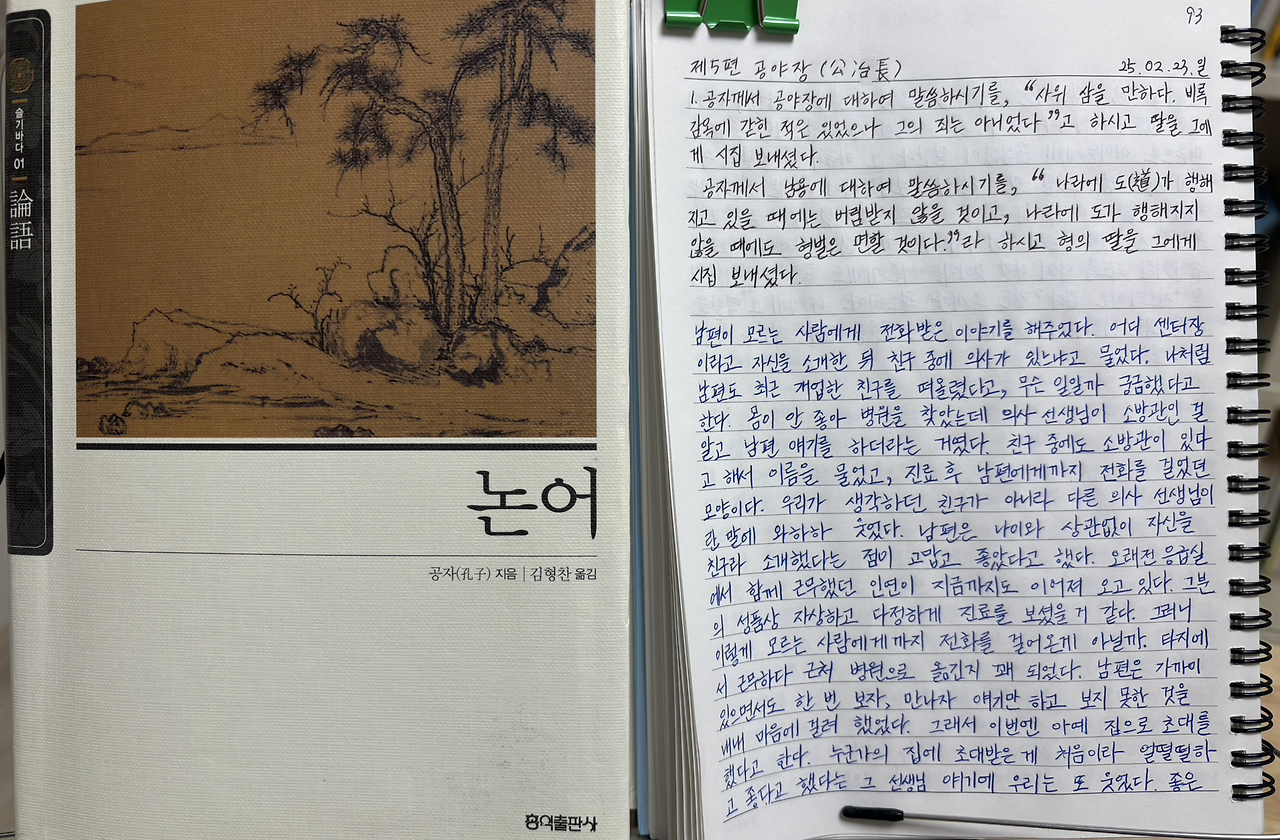 슬기바다 01
論語
논어
공자(孔子) 지음 | 김형찬 옮김
홍익출판사
93
제5편 공야장 (公冶長) 25.02.23.일
1. 공자께서 공야장에 대하여 말씀하시기를, "사위 삼을 만하다. 비록
감옥에 갇힌 적은 있었으나 그의 죄는 아니었다"고 하시고 딸을 그에
게 시집 보내셨다.
공자께서 남용에 대하여 말씀하시기를, "나라에 도(道)가 행해
지고 있을 때에는 버림받지 않을 것이고, 나라에 도가 행해지지
않을 때에도 형벌은 면할 것이다."라 하시고 형의 딸을 그에게
시집 보내셨다.
남편이 모르는 사람에게 전화받은 이야기를 해주었다. 어디 센터장
이라고 자신을 소개한 뒤 친구 중에 의사가 있느냐고 물었다. 나처럼
남편도 최근 개업한 친구를 떠올렸다고, 무슨 일일까 궁금했다고
한다. 몸이 안 좋아 병원을 찾았는데 의사 선생님이 소방관인 걸
알고 남편 얘기를 하더라는 거였다. 친구 중에도 소방관이 있다
고 해서 이름을 물었고, 진료 후 남편에게까지 전화를 걸었던
모양이다. 우리가 생각하던 친구가 아니라 다른 의사 선생님이
란 말에 와하하 웃었다. 남편은 나이와 상관없이 자신을
친구라 소개했다는 점이 고맙고 좋았다고 했다. 오래전 응급실
에서 함께 근무했던 인연이 지금까지도 이어져 오고 있다. 그분
의 성품상 자상하고 다정하게 진료를 보셨을 거 같다. 그러니
이렇게 모르는 사람에게까지 전화를 걸어온게 아닐까. 타지에
서 근무하다 근처 병원으로 옮긴지 꽤 되었다. 남편은 가까이
있으면서도 한 번 보자, 만나자 얘기만 하고 보지 못한 것을
내내 마음에 걸려 했었다. 그래서 이번엔 아예 집으로 초대를
했다고 한다. 누군가의 집에 초대받은 게 처음이라 얼떨떨하
고 좋다고 했다는 그 선생님 얘기에 우리는 또 웃었다. 좋은